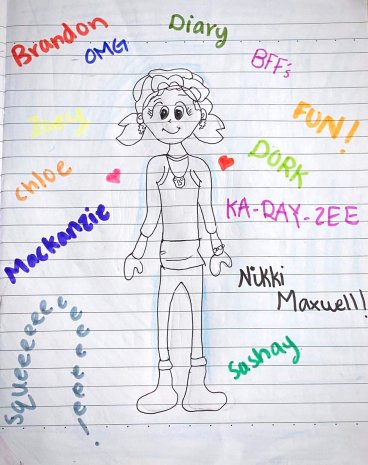 Brandon
OMG
Diary
BFF's
FUN!
Zoey
DORK
chloe
KA-RAY-ZEE
Mackanzie
Nikki
Maxwell!
Sashay